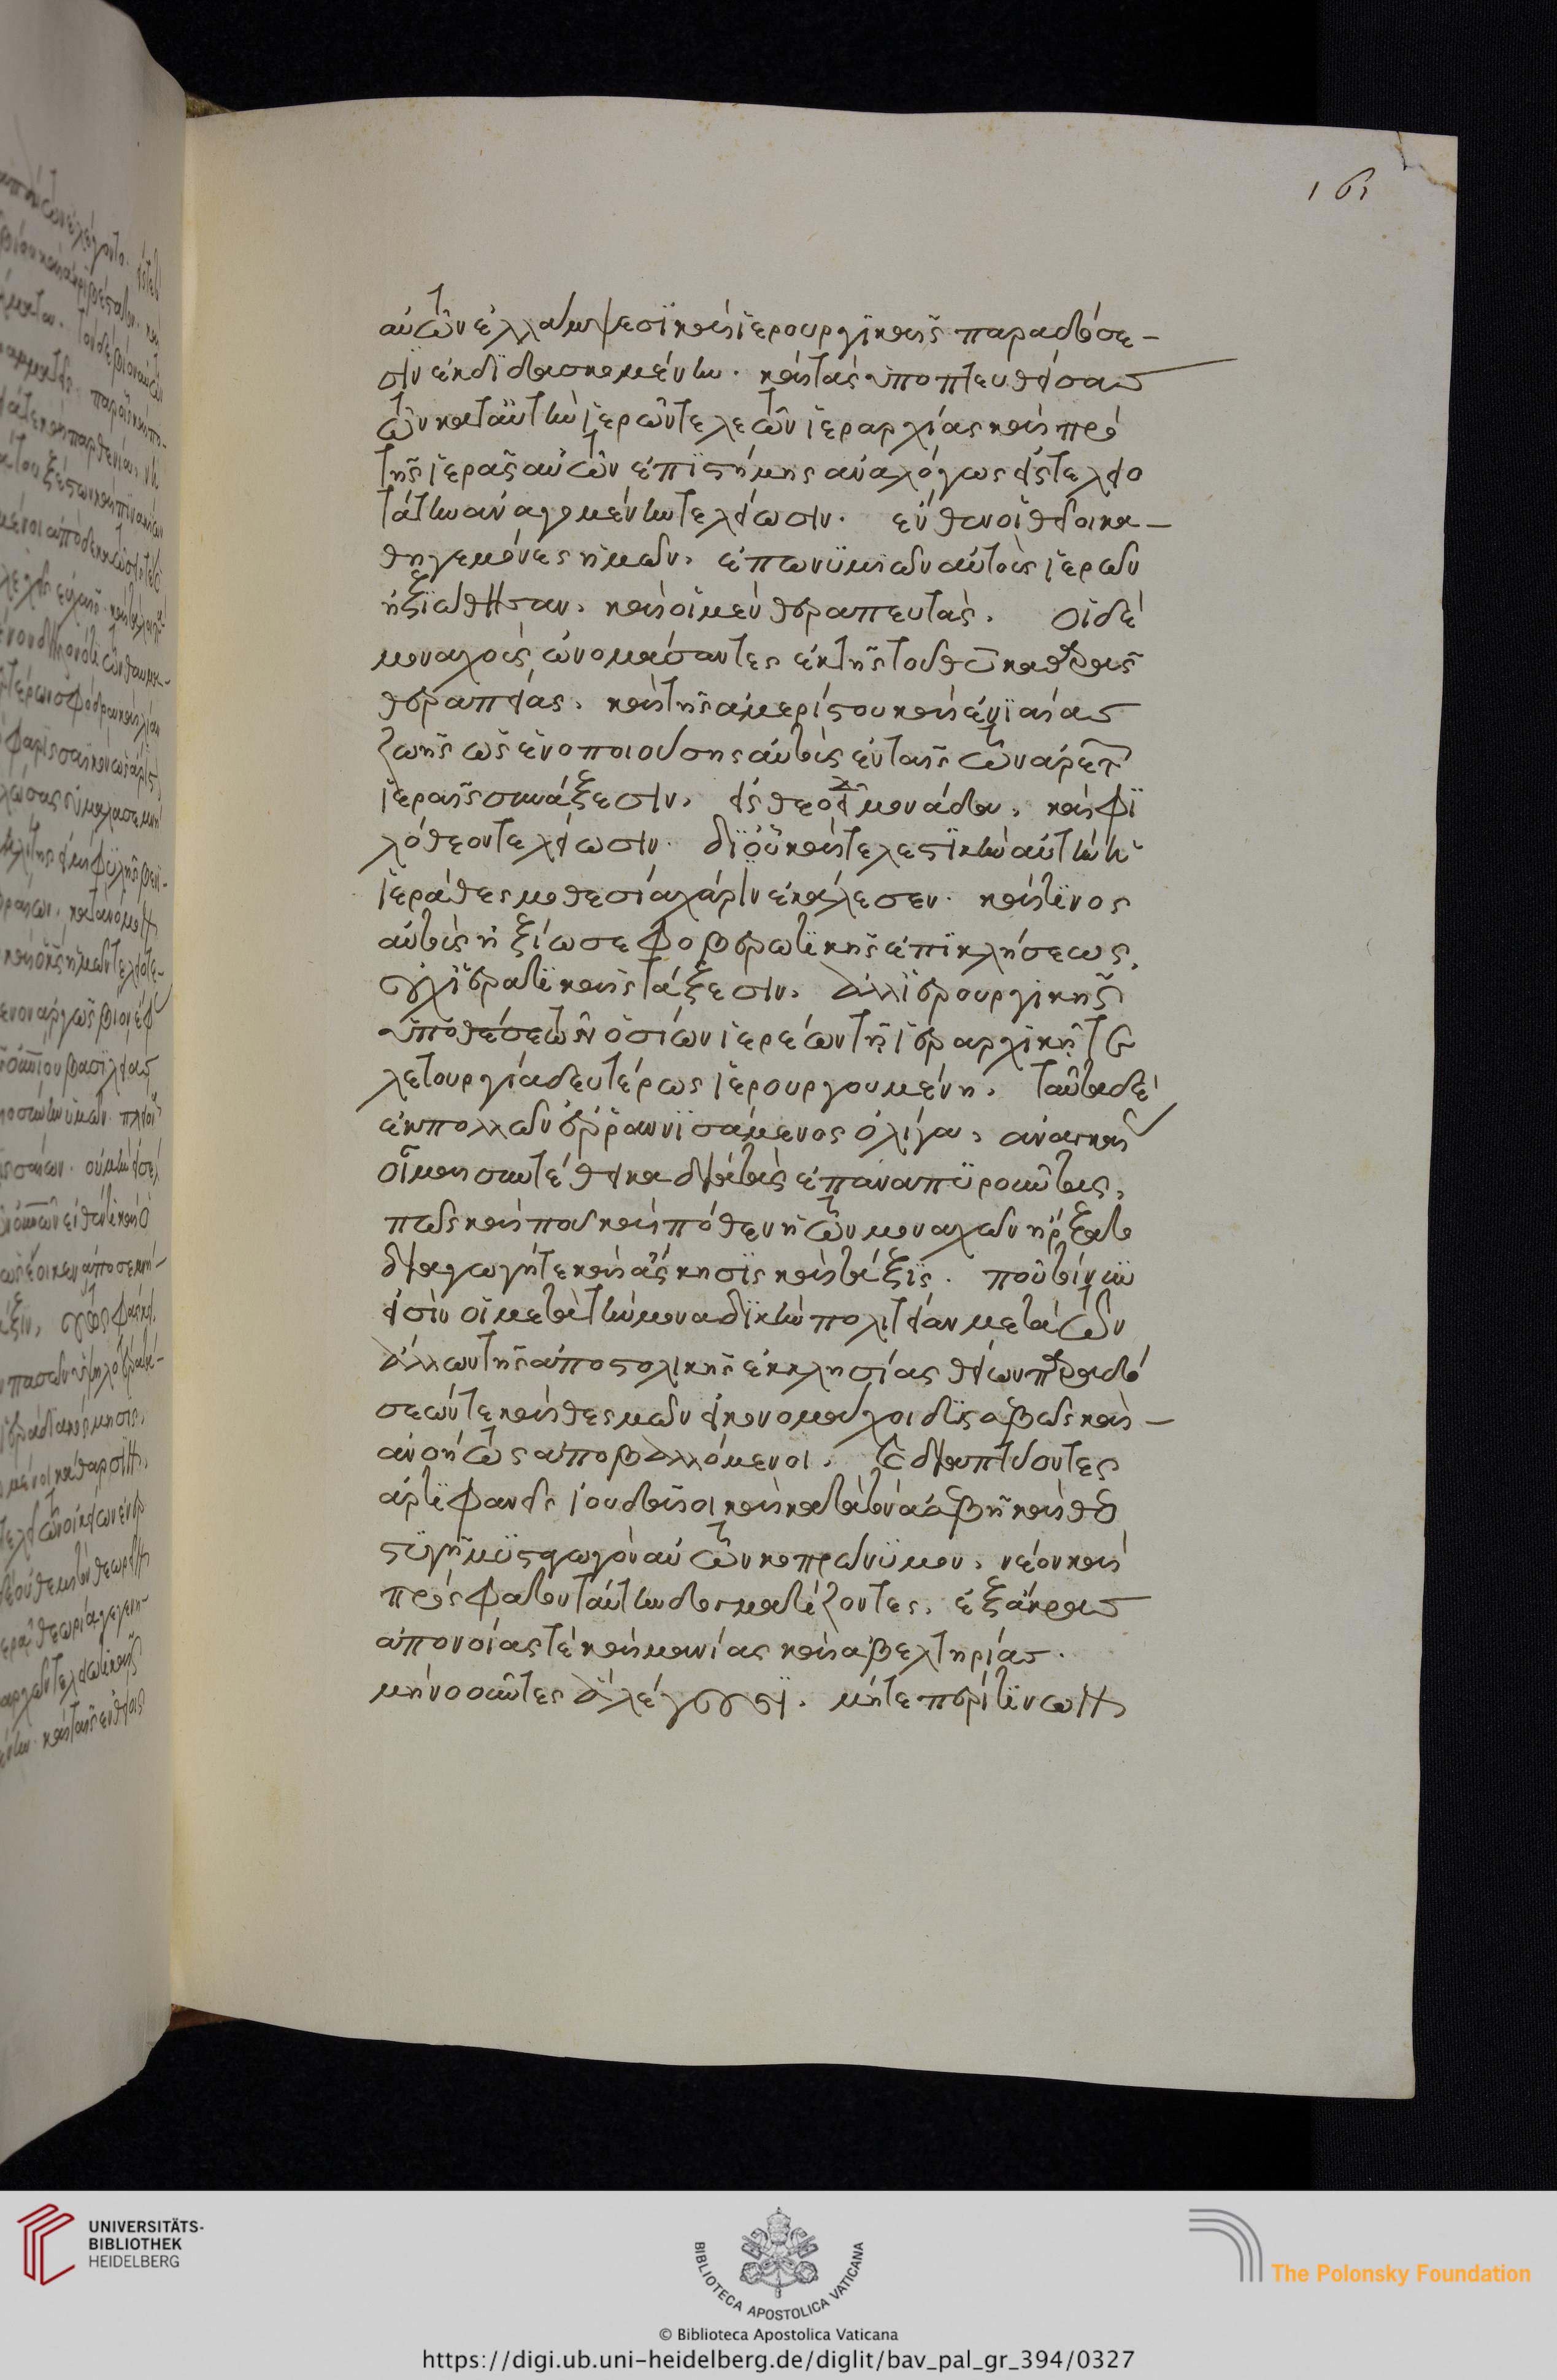 αὐτῶν ἐλλάμψεσϊ καὶ ἱερουργϊκαῖς παραδόσε-
σιν ἐκδϊδασκομένην. καὶ τὰς ὑποπτευθείσας
τῶν κατ' αὐτὴν ἱερῶν τελετῶν ἱεραρχίας καὶ πρὸ
τῆς ἱερᾶς αὐτῶν ἐπϊστήμης ἀναλόγως εἰς τελειο
τάτην ἀναγομένην τελείωσιν. ἔνθεν οἱ θεῖοι κα-
θηγεμόνες ἡμῶν, ἐπωνϋμιῶν αὐτοὺς ἱερῶν
ἠξϊώθησαν, καὶ οἱ μὲν θεραπευτὰς. οἱ δὲ
μοναχοὺς ὠνομάσαντες ἐκ τῆς τοῦ θῡ καθαρᾶς
θεραπείας, καὶ τῆς ἀμερίστου καὶ ἑνϊαίας
ζωῆς ὡς ἑνοποιούσης αὐτοὺς ἐν ταῖς τῶν ἀρετῶν
ἱεραῖς συνάξεσιν, εἰς θεοειδῆ μονάδα, καὶ φϊ
λόθεον τελείωσιν. δϊ' οὗ καὶ τελεστϊκὴν αὐτὴν ἡ
ἱερὰ θεσμοθεσία χάριν ἐκάλεσεν. καὶ τϊνος
αὐτοὺς ἠξίωσε φοβερωτϊκῆς ἐπϊκλήσεως,
οὐχ ἱερατϊκαῖς τάξεσιν, ἀλλ' ἱερουργικῆς
ὑποθέσεως τῶν ὁσίων ἱερέων τῇ ἱεραρχικῇ τε
λετουργία δευτέρως ἱερουργουμένη. ταῦτα δὲ
ἐκ πολλῶν ἐρραννϊσάμενος ὀλίγα, ἀναγκαῖ
οἶμαι συντέθεικα διὰ τοὺς ἐπαναπϋροῦντας,
πῶς καὶ ποῦ καὶ πόθεν ἡ τῶν μοναχῶν ἤρξατο
διαγωγή τε καὶ ἄσκησϊς καὶ τάξϊς. ποῦ τοίνυν
εἰσὶν οἱ μετὰ τὴν μοναδϊκὴν πολιτείαν μετὰ τῶν
ἄλλων τῆς ἀποστολικῆς ἐκκλησίας θείων παραδό
σεών τε καὶ θεσμῶν εἰκονομάχοι δϊσαβῶς καὶ-
ἀνοήτως ἀποβαλλόμενοι, καὶ διαπτύοντες
ἀρτϊφανεῖς ἰουδαῖοι καὶ κατὰ τὸν ἀσεβῆ καὶ θεο
στϋγῆ μϋσταγωγὸν αὐτῶν κοπρώνϋμον, νέον καὶ
πρόσφατον ταύτην δογματίζοντες, ἐξ ἄκρας
ἀπονοίας τὲ καὶ μανίας καὶ ἀβελτηρίας.
μὴ νοοῦντες ἃ λέγουσϊ. μήτε περὶ τϊνων